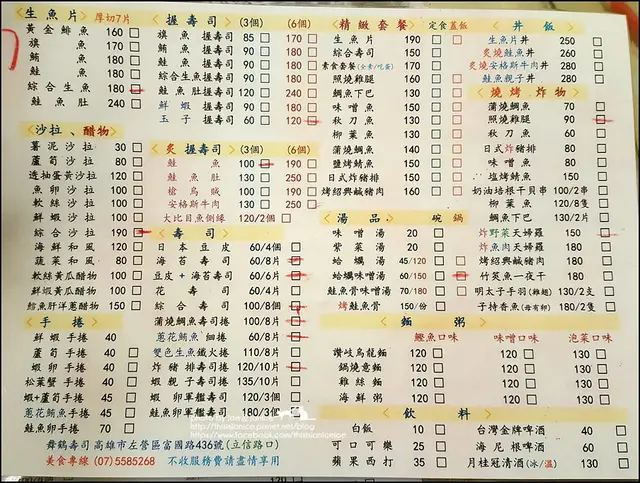 生魚片 厚切7片
黃金鯡魚 160
旗魚 170
鮪魚 180
鮭魚 180
綜合生魚 180
鮭魚肚 240
沙拉、醋物
薯泥沙拉 30
蘆筍沙拉 80
透抽蛋黃沙拉 120
魚卵沙拉 100
軟絲沙拉 100
鮮蝦沙拉 100
綜合沙拉 190
海鮮和風 120
蔬菜和風 80
軟絲黃瓜醋物 100
鮮蝦黃瓜醋物 100
鱈魚肝洋蔥醋物 150
手捲
鮮蝦手捲 40
蘆筍手捲 40
蝦卵手捲 40
松葉蟹手捲 40
蝦+蘆筍手捲 45
蔥花鮪魚手捲 45
鮭魚卵手捲 70
握壽司 (3個) (6個)
旗魚握壽司 85 170
鮪魚握壽司 90 180
鮭魚握壽司 90 180
綜合生魚握壽司 90 180
鮭魚肚握壽司 120 240
鮮蝦握壽司 90 180
玉子握壽司 60 120
炙握壽司 (3個) (6個)
鮭魚 100 190
鮭魚肚 130 250
槍烏賊 100 190
安格斯牛肉 130 250
大比目魚側緣 120/2個
壽司
日本豆皮 60/4個
海苔壽司 60/8片
豆皮+海苔壽司 60/6片
花壽司 60/4片
綜合壽司 100/8個
蒲燒鯛魚壽司捲 100/8片
蔥花鮪魚細捲 60/8片
雙色生魚鐵火捲 110/8片
炸豬排壽司捲 120/10片
蝦親子壽司捲 135/10片
蝦卵軍艦壽司 80/3個
鮭魚卵軍艦壽司 180/3個
精緻套餐 定食 蓋飯
生魚片 190
綜合壽司 150
素食套餐(全素/吃蛋) 170
照燒雞腿 160
鯛魚下巴 130
味噌魚 130
秋刀魚 130
柳葉魚 130
蒲燒鯛魚 140
鹽烤鯖魚 150
日式炸豬排 150
烤紹興鹹豬肉 160
湯品 碗 鍋
味噌湯 20
紫菜湯 20
蛤蠣湯 45/120
蛤蠣味噌湯 60/150
鮭魚骨味噌湯 70/180
烤鮭魚骨 150/份
丼飯
生魚片丼 250
炙燒鮭魚丼 260
炙燒安格斯牛肉丼 280
鮭魚親子丼 280
燒烤 炸物
蒲燒鯛魚 70
照燒雞腿 90
秋刀魚 60
日式炸豬排 80
味噌魚 80
塩烤鯖魚 150
奶油培根干貝串 100/2串
柳葉魚 120/8隻
鯛魚下巴 130/2片
炸野菜天婦羅 150
炸魚肉天婦羅 180
烤紹興鹹豬肉 120
竹筴魚一夜干 180
明太子手羽(雞翅) 130/2支
子持香魚(母有卵) 180/2隻
麵 粥
鰹魚口味 味噌口味 泡菜口味
讚岐烏龍麵 120 120 130
鍋燒意麵 120 120 130
雞絲麵 120 120 130
海鮮粥 120 120 130
飲料
白飯 10
可口可樂 25
蘋果西打 35
台灣金牌啤酒 40
海尼根啤酒 60
月桂冠清酒(冰/溫) 130
舞鶴壽司 高雄市左營區富國路436號(立信路口)
美食專線 (07)5585268 不收服務費請盡情享用